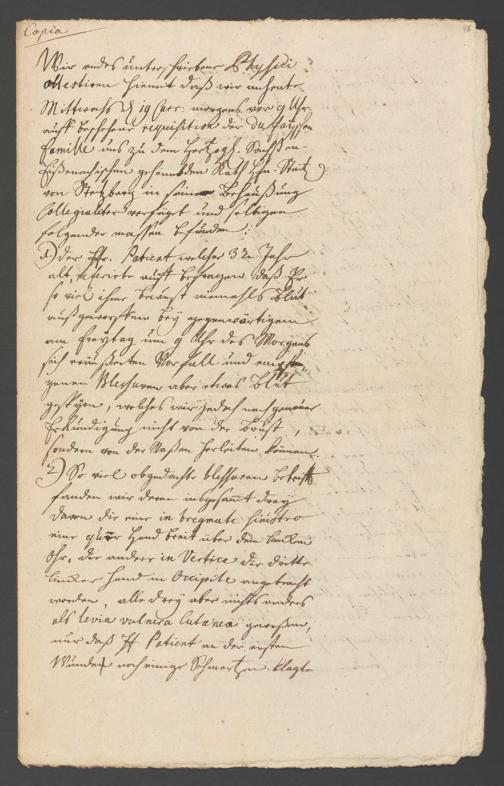 Copia
Wir endes unterschriebene Physici
attestiren hiermit daß wir an heute
Mittwochs d 19 morgens vor 9 Uhr
auff beschehene requisition der
Famille uns zu dem Hertzogl. Sachsen-
Eisenachischen geheimbden Rath Hn.
von in seine Behaußung
Collegialiter verfügt und selbigen
folgender massen befunden:
1.) der Hr. Patient welcher 32 Jahr
alt, referirte auff befragen, daß Er
so viel ihme bewust niemahls Blut
außgeworffen bey gegenwärtigem
am Freytag um 9 Uhr des Morgens
sich Vorfall und
genen Blessuren aber etwas Blut
gespyen, welches wir jedoch nach genauer
Erkundigung nicht von der Brust,
sondern von der Naßen herleiten können.
2.) So viel obgedachte blessuren betrifft
fanden wir deren ingesamt drey
davon die eine in bregmate sinistro
eine quer Hand breit über dem lincken
Ohr, die andere in Vertice die dritte
lincker Hand in Occipite angebracht
worden, alle drey aber nichts anders
als levia vulnera Cutanea gewesen,
nur daß H Patient an der ersten
Wunden noch einige Schmertzen klagte